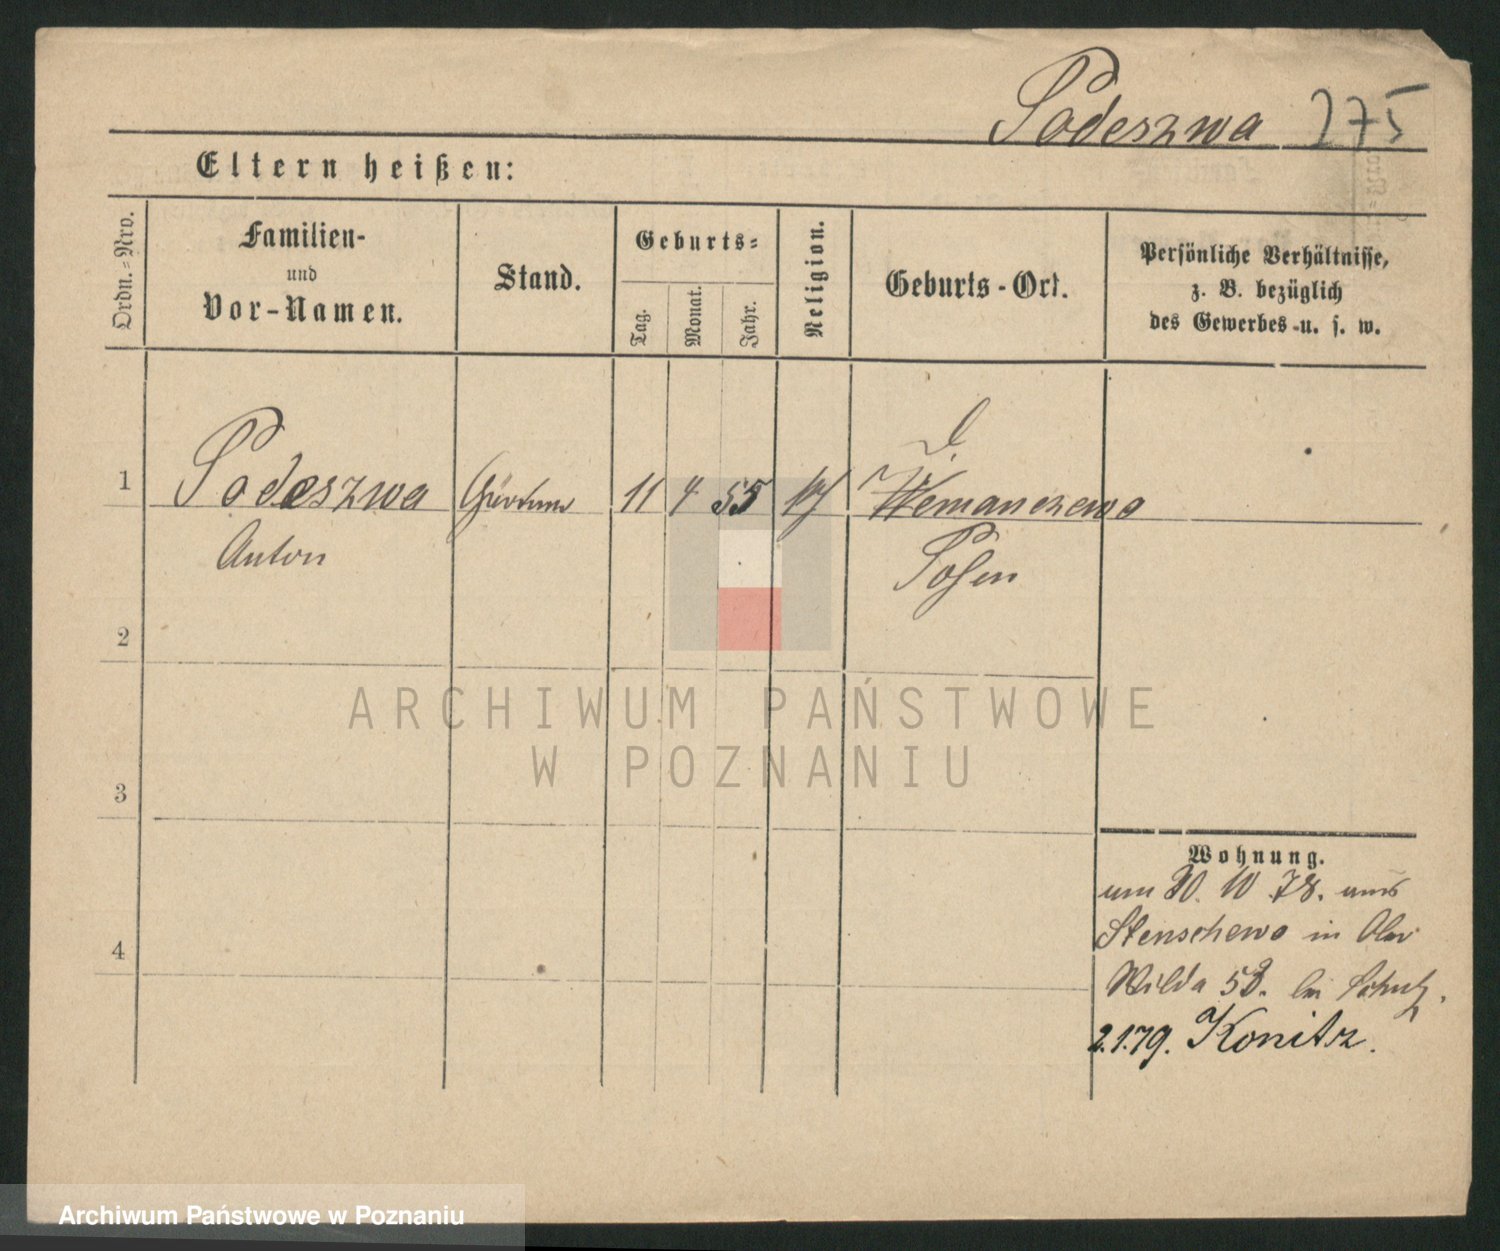 Podeszwa 275
Eltern heißen:
Ordn.=Nro.
Familien-
und
Vor-Namen.
Stand.
Geburts=
Tag.
Monat.
Jahr.
Religion.
Geburts-Ort.
Persönliche Verhältnisse,
z. B. bezüglich
des Gewerbes u. s. w.
1 Podeszwa 11 4 55
Anton
Posen
2
3
4
Wohnung.
10 78.
Stenschewo in Ober
Wilda
2.1.79. Konitz.
ARCHIWUM PAŃSTWOWE
W POZNANIU
Archiwum Państwowe w Poznaniu